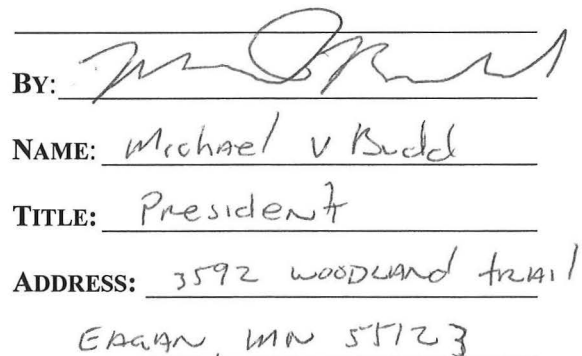 BY:
NAME: Michael V Budd
TITLE: President
ADDRESS: 3592 WOODLAND TRAIL
EAGAN, MN 55123